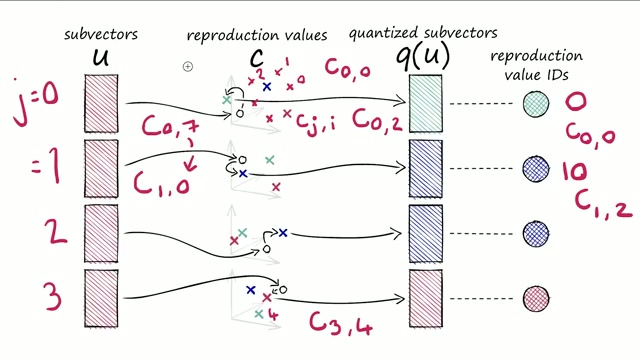 subvectors
u
reproduction values
c
quantized subvectors
q(u)
reproduction
value IDs
j=0
2
1
0
C0,0
0
C0,7
Cj,i
C0,2
C0,0
=1
C1,0
10
C1,2
2
3
4
C3,4